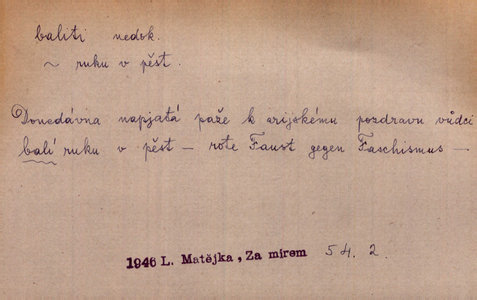 baliti nedok.
~ ruku v pěst.
Donedávna napjatá paže k arijskému pozdravu vůdci
balí ruku v pěst – rote Faust gegen Faschismus –
1946 L. Matějka, Za mírem 54. 2.